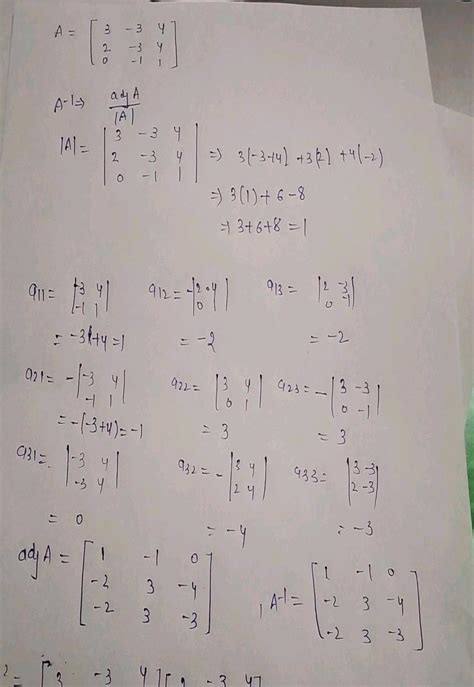 A = [ 3 -3 4
2 -3 4
0 -1 1 ]
A⁻¹ ⇒ adj A / |A|
|A| = | 3 -3 4
2 -3 4
0 -1 1 | ⇒ 3[-3+4] + 3[2] + 4(-2)
⇒ 3(1) + 6 - 8
⇒ 3+6+8 = 1
a11 = |-3 4 / -1 1| a12 = -|2 4 / 0 1| a13 = |2 -3 / 0 -1|
= -3+4 = 1 = -2 = -2
a21 = -|-3 4 / -1 1| a22 = |3 4 / 0 1| a23 = -|3 -3 / 0 -1|
= -(-3+4) = -1 = 3 = 3
a31 = |-3 4 / -3 4| a32 = -|3 4 / 2 4| a33 = |3 -3 / 2 -3|
= 0 = -4 = -3
adj A = [ 1 -1 0
-2 3 -4
-2 3 -3 ]
, A⁻¹ = [ 1 -1 0
-2 3 -4
-2 3 -3 ]
2 = [ 3 -3 4 ] [ 3 -3 4 ]